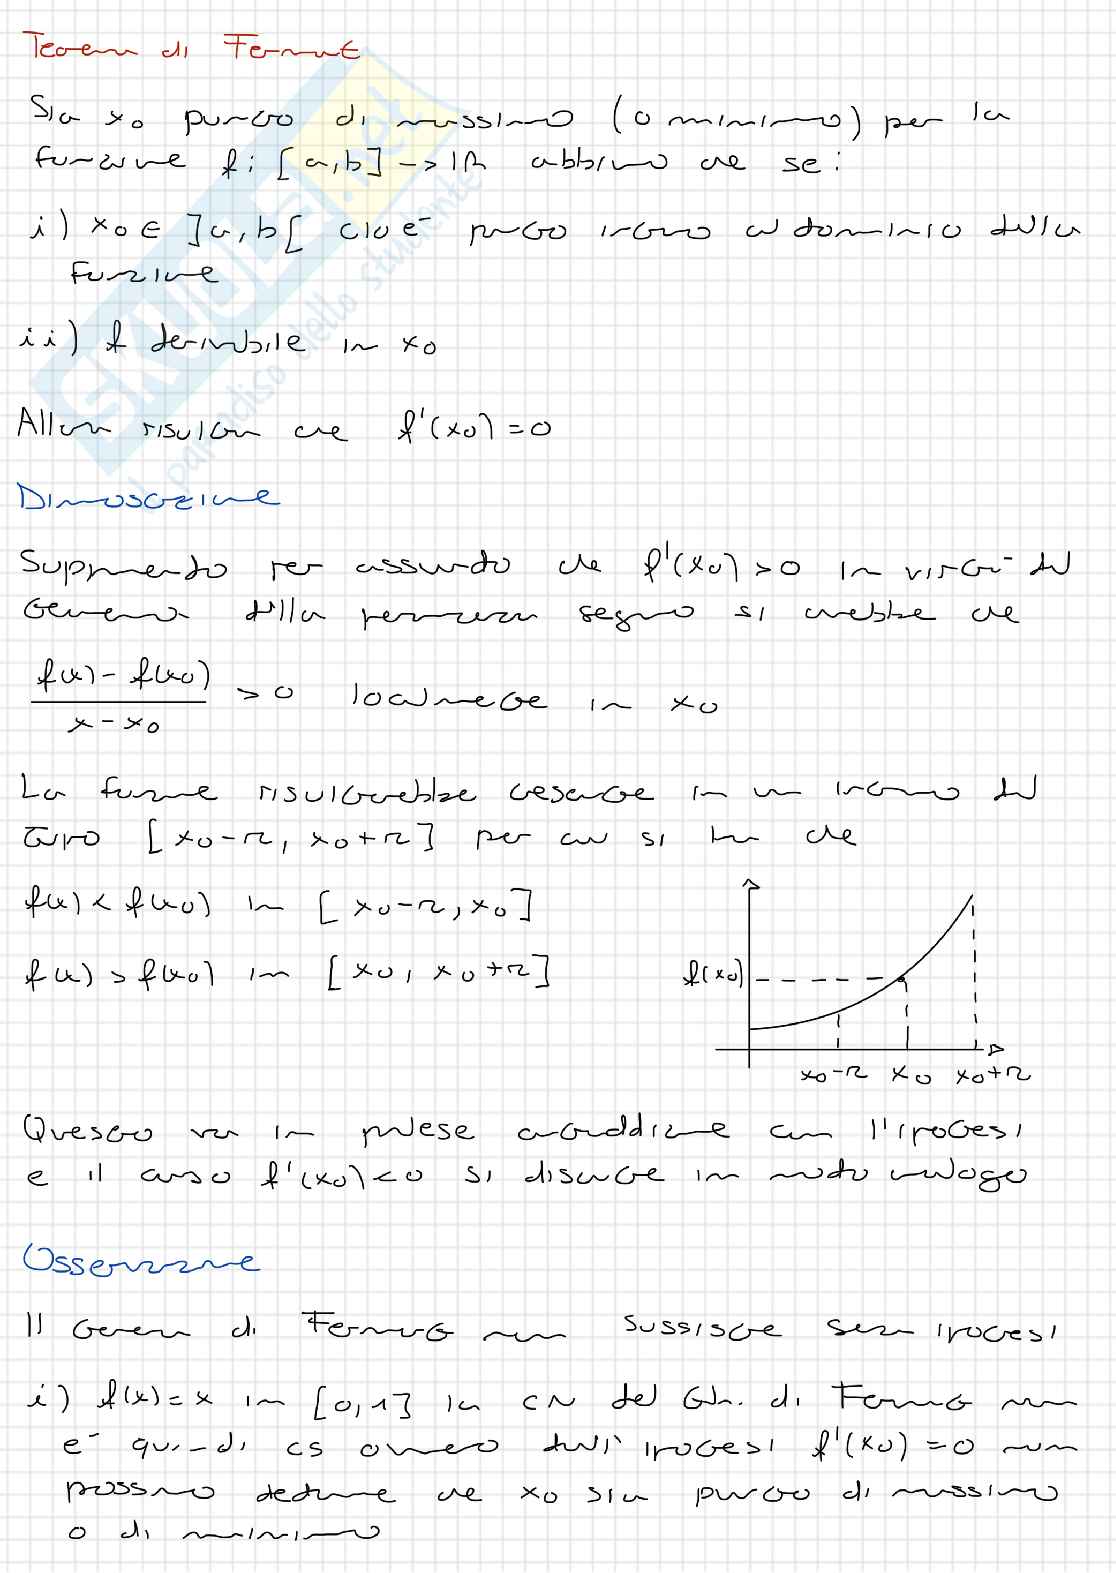 Teorema di Fermat
Sia x₀ punto di massimo (o minimo) per la
funzione f: [a,b] -> ℝ abbiamo che se:
i) x₀ ∈ ]a,b[ cioè punto interno al dominio della
funzione
ii) f derivabile in x₀
Allora risulta che f'(x₀) = 0
Dimostrazione
Supponendo per assurdo che f'(x₀) > 0 in virtù del
teorema della permanenza segno si avrebbe che
f(x) - f(x₀) / x - x₀ > 0 localmente in x₀
La funzione risulterebbe crescente in un intorno del
tipo [x₀-r, x₀+r] per cui si ha che
f(x) < f(x₀) in [x₀-r, x₀]
f(x) > f(x₀) in [x₀, x₀+r]
f(x₀)
x₀-r x₀ x₀+r
Questo va in palese contraddizione con l'ipotesi
e il caso f'(x₀) < 0 si discute in modo analogo
Osservazione
Il teorema di Fermat non sussiste senza ipotesi
i) f(x) = x in [0,1] la CN del th. di Fermat non
è quindi CS ovvero dall'ipotesi f'(x₀) = 0 non
possiamo dedurre che x₀ sia punto di massimo
o di minimo
SKUOLA.net
il paradiso dello studente